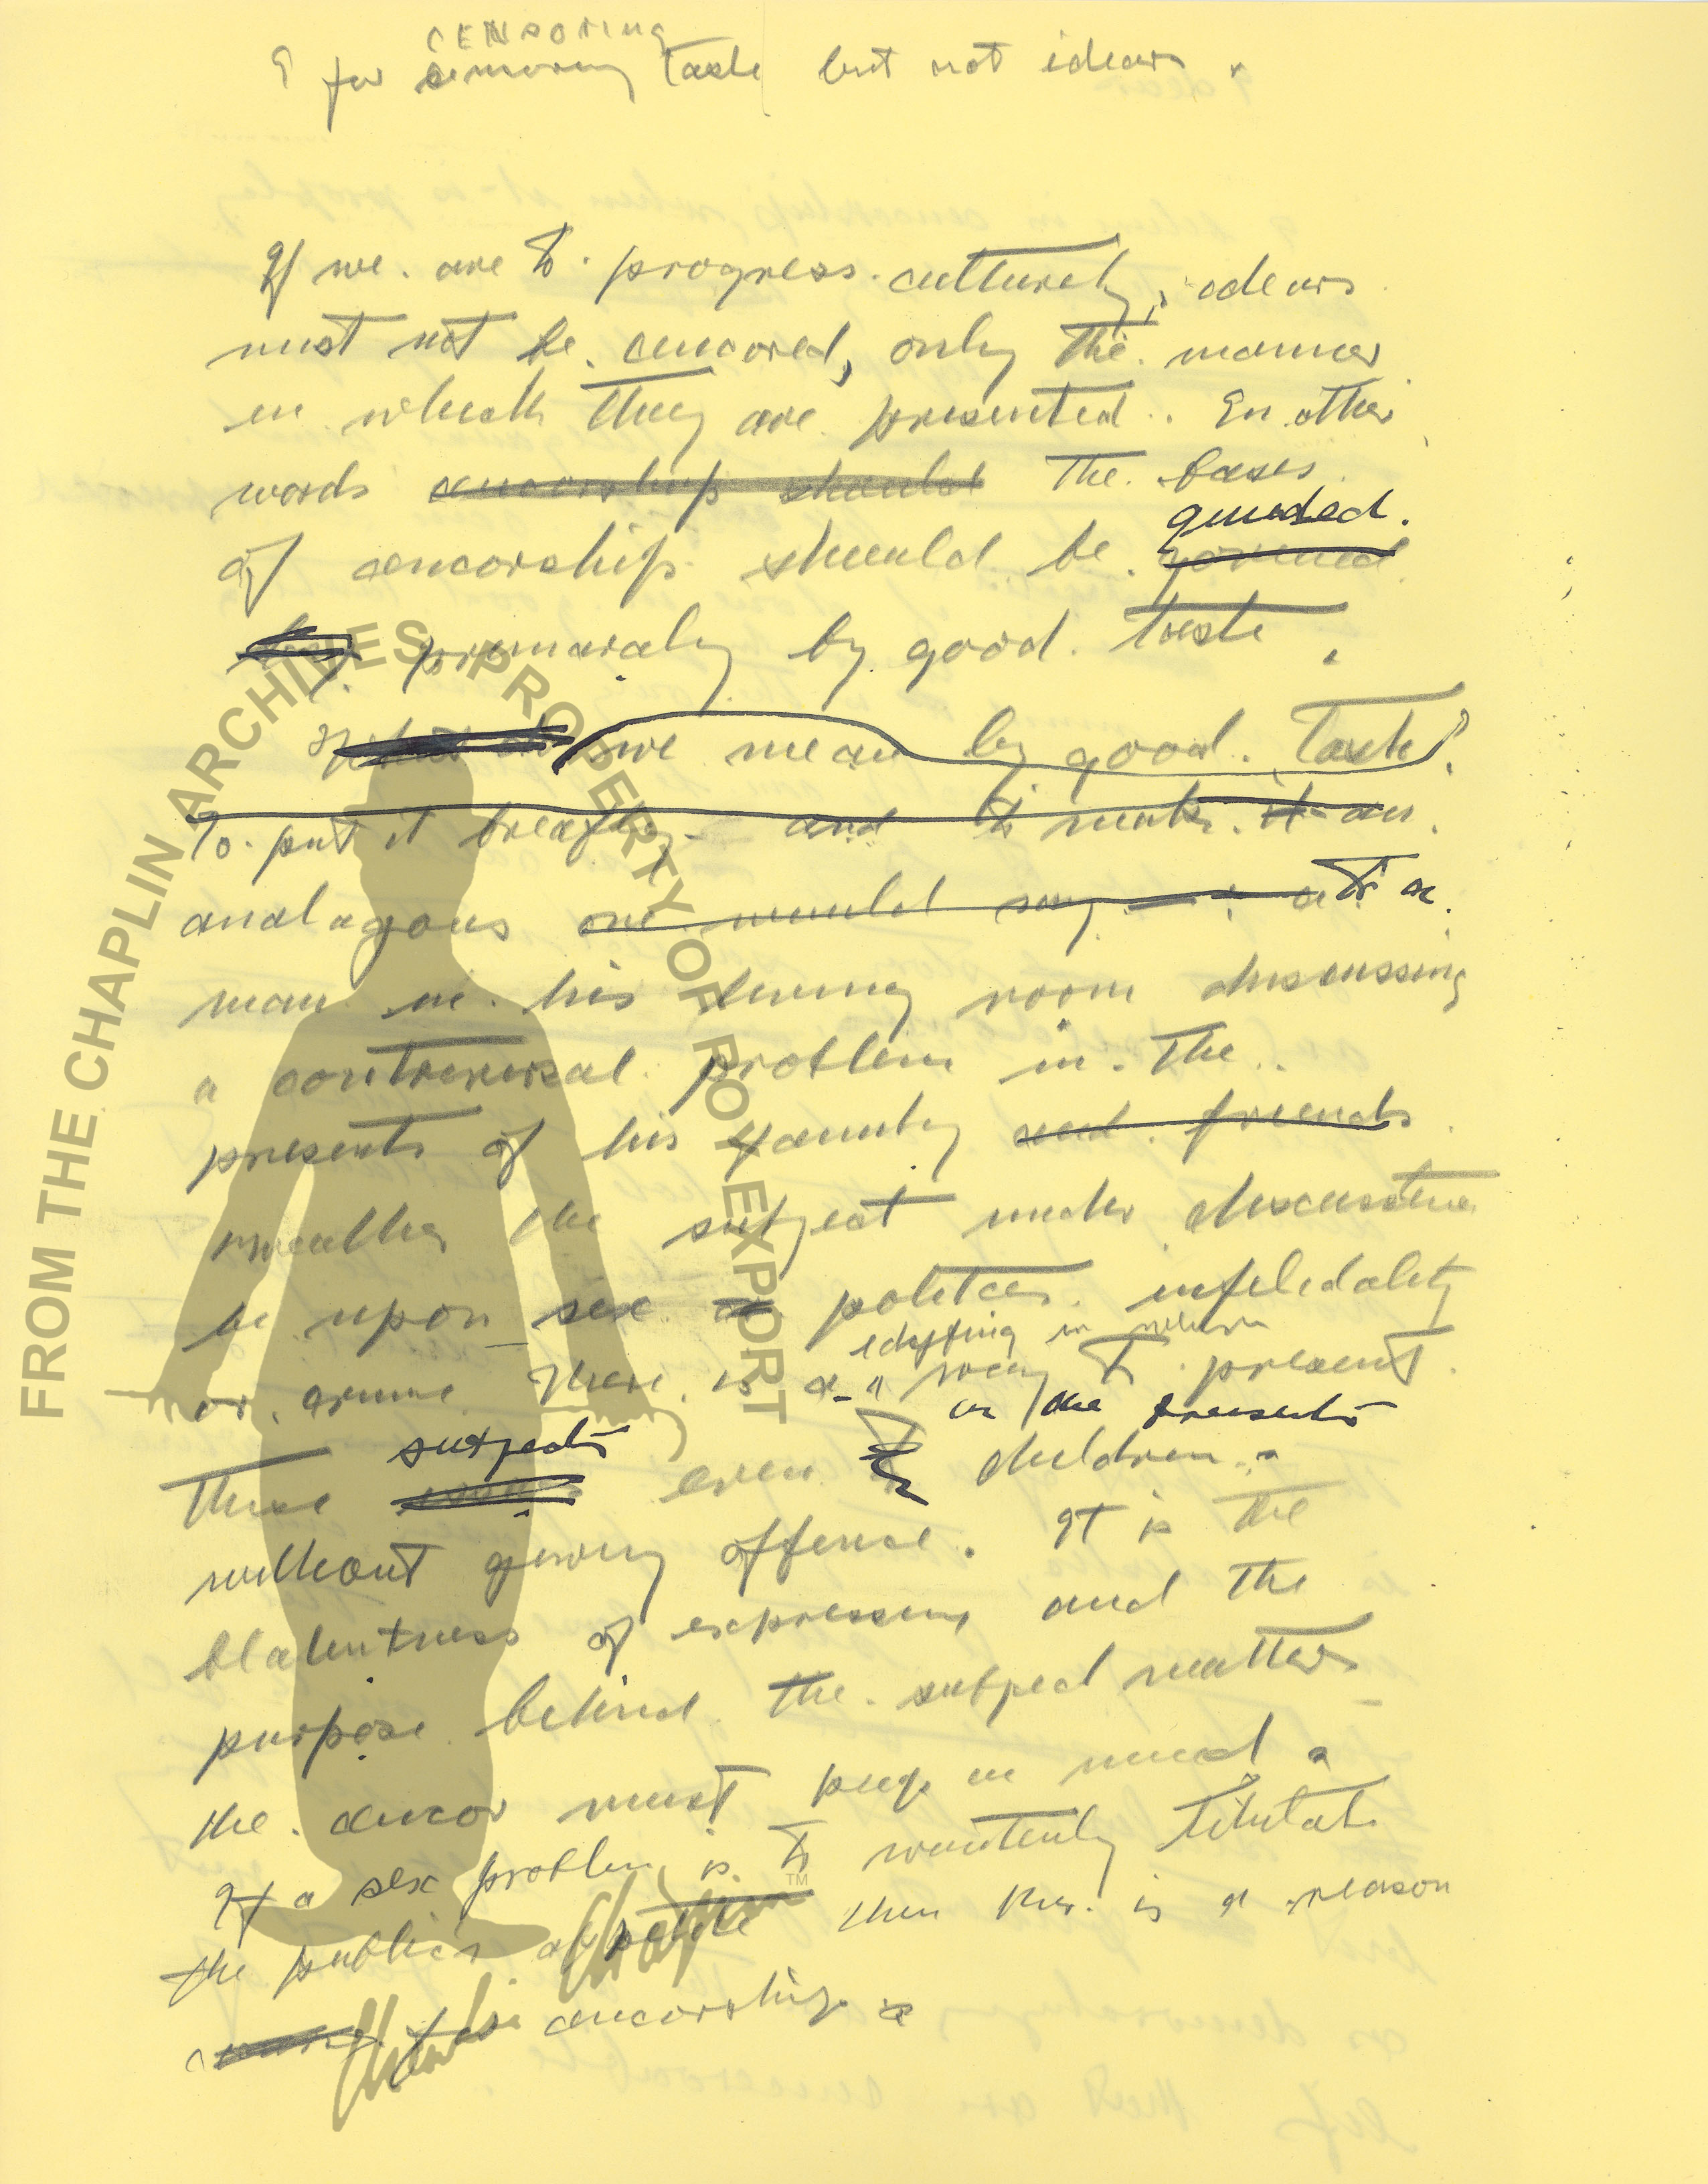 CENSORING
I for censoring taste but not idears.
If we are to progress culturely, idears
must not be cencored, only the manner
in which they are presented. In other
words cencorship should the bases
guided.
of cencorship should be governed
by primaraly by good taste.
we mean by good taste?
To put it breafly - and to make it an
analagous one would say to a
man in his living room discussing
a contreversal problem in the
presents of his family and friends
wheather the subject under discusstion
be upon sex or politics infeledality
edifying in which
or crime. There is a way to present
in the presents
subjects
these even to children.
without giving offense. It is the
blatentness of expressing and the
purpose behind the subject matter
the cencor must keep in mind.
If a sex problem is to wantenly titutate
the publics appatite then ther is a reason
for cencorship.
FROM THE CHAPLIN ARCHIVES PROPERTY OF ROY EXPORT
Charlie Chaplin ™